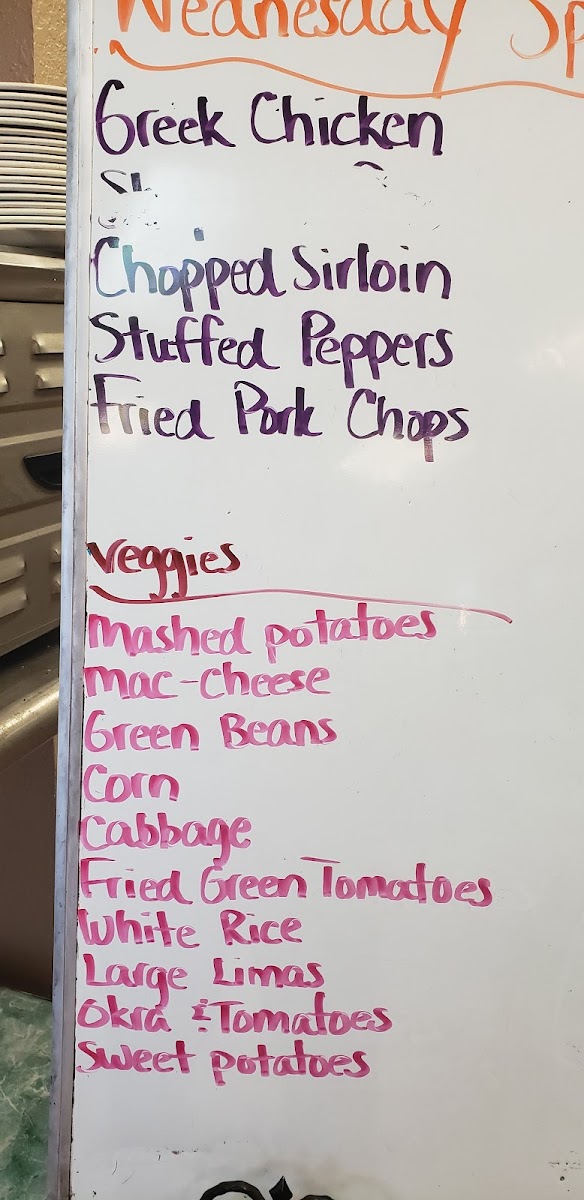 Wednesday Sp
Greek Chicken
Chopped Sirloin
Stuffed Peppers
Fried Pork Chops
Veggies
mashed potatoes
mac-cheese
Green Beans
Corn
Cabbage
Fried Green Tomatoes
White Rice
Large Limas
Okra & Tomatoes
Sweet potatoes